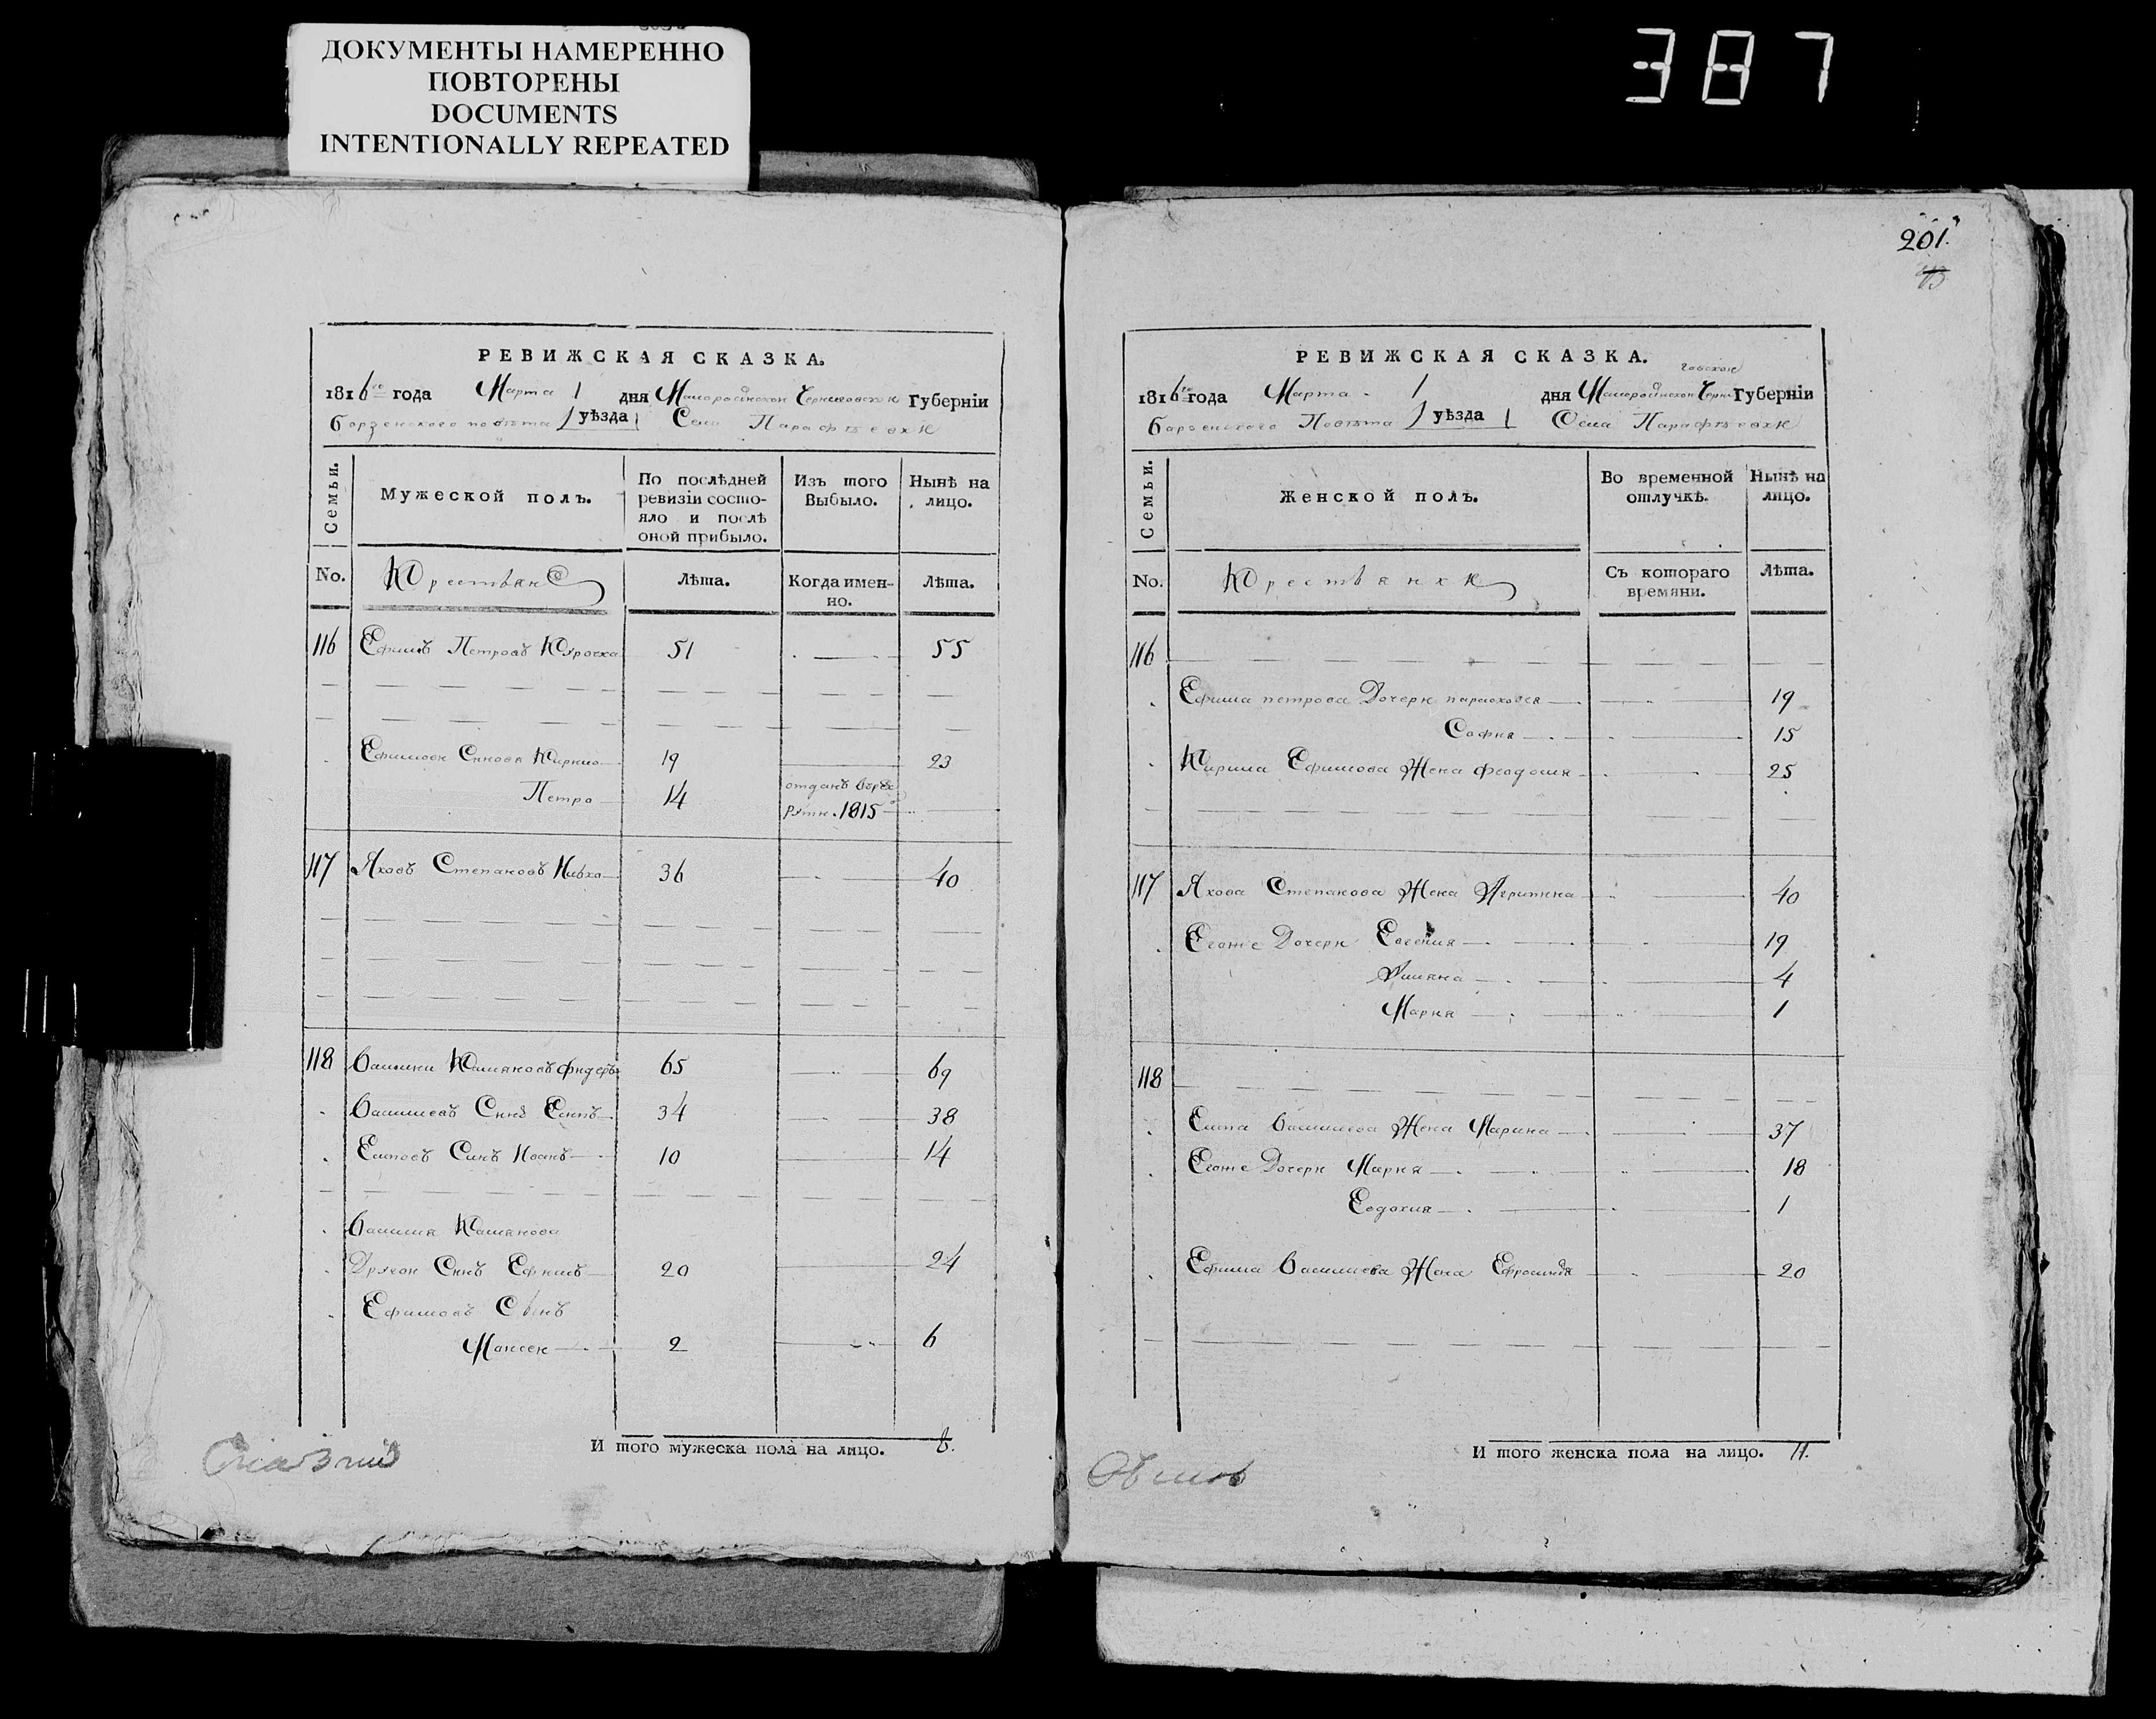 ДОКУМЕНТЫ НАМЕРЕННО
ПОВТОРЕНЫ
DOCUMENTS
INTENTIONALLY REPEATED
387
РЕВИЖСКАЯ СКАЗКА.
1816го года Марта 1 дня Малоросійской Черниговской Губерніи
Борзенского повѣта уѣзда Села Парафѣевки
Семьи.
Мужеской полъ.
По послѣдней ревизіи состо-
яло и послѣ оной прибыло.
Изъ того Выбыло.
Нынѣ на лицо.
No.
Крестьяне
Лѣта.
Когда имен-
но.
Лѣта.
116 Ефимъ Петровъ 51 55
Ефимовы Сыновя Кирило 19 23
Петро 14 отданъ в рек
руты 1815
117 Яковъ Степановъ 36 40
118 Василий 65 69
Васильевъ Сынъ Есипъ 34 38
Есиповъ Сынъ Иванъ 10 14
Василия
Другой Сынъ Ефимъ 20 24
Ефимовъ Сынъ
Моисей 2 6
И того мужеска пола на лицо. 8.
201
РЕВИЖСКАЯ СКАЗКА.
1816го года Марта 1 дня Малоросійской Черниговской Губерніи
Борзенского Повѣта уѣзда Села Парафѣевки
Семьи.
Женской полъ.
Во временной отлучкѣ.
Нынѣ на лицо.
No.
Крестьянки
Съ котораго времяни.
Лѣта.
116
Ефима петрова Дочери парасковея 19
София 15
Кирила Ефимова Жена Феодосия 25
117 Якова Степанова Жена 40
Егоже Дочери Евгения 19
Улияна 4
Мария 1
118
Есипа Васильева Жена Марина 37
Егоже Дочери Мария 18
Евдокия 1
Ефима Васильева Жена Ефросиния 20
И того женска пола на лицо. 11.